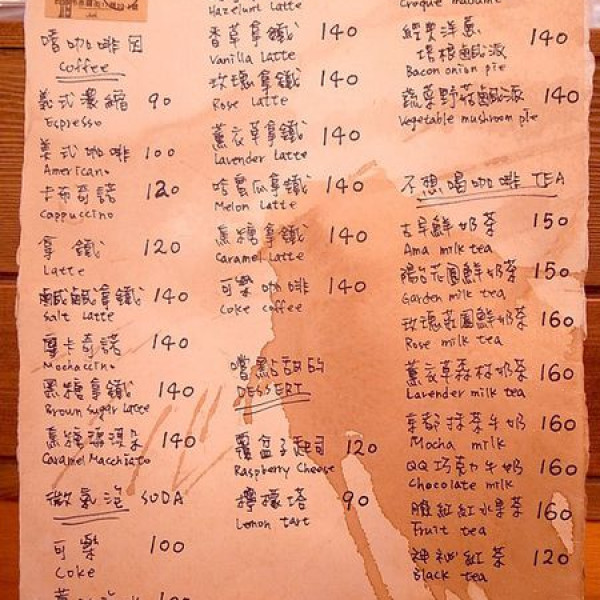 嗜咖啡因
Coffee
義式濃縮 90
Espresso
美式咖啡 100
Americano
卡布奇諾 120
Cappuccino
拿鐵 120
Latte
鹹鹹拿鐵 140
Salt Latte
摩卡奇諾 140
Mochaccino
黑糖拿鐵 140
Brown Sugar Latte
焦糖瑪琪朵 140
Caramel Macchiato
微氣泡 SODA
可樂 100
Coke
Hazelnut Latte
香草拿鐵 140
Vanilla Latte
玫瑰拿鐵 140
Rose Latte
薰衣草拿鐵 140
Lavender Latte
哈蜜瓜拿鐵 140
Melon Latte
焦糖拿鐵 140
Caramel Latte
可樂咖啡 140
Coke coffee
嚐點甜的
DESSERT
覆盆子起司 120
Raspberry Cheese
檸檬塔 90
Lemon tart
Croque madame
經典洋蔥
培根鹹派 140
Bacon onion pie
蔬菜野菇鹹派 140
Vegetable mushroom pie
不想喝咖啡 TEA
古早鮮奶茶 150
Ama milk tea
陽台花園鮮奶茶 150
Garden milk tea
玫瑰花園鮮奶茶 160
Rose milk tea
薰衣草森林奶茶 160
Lavender milk tea
京都抹茶牛奶 160
Mocha milk
QQ巧克力牛奶 160
Chocolate milk
臉紅紅水果茶 160
Fruit tea
神祕紅茶 120
Black tea